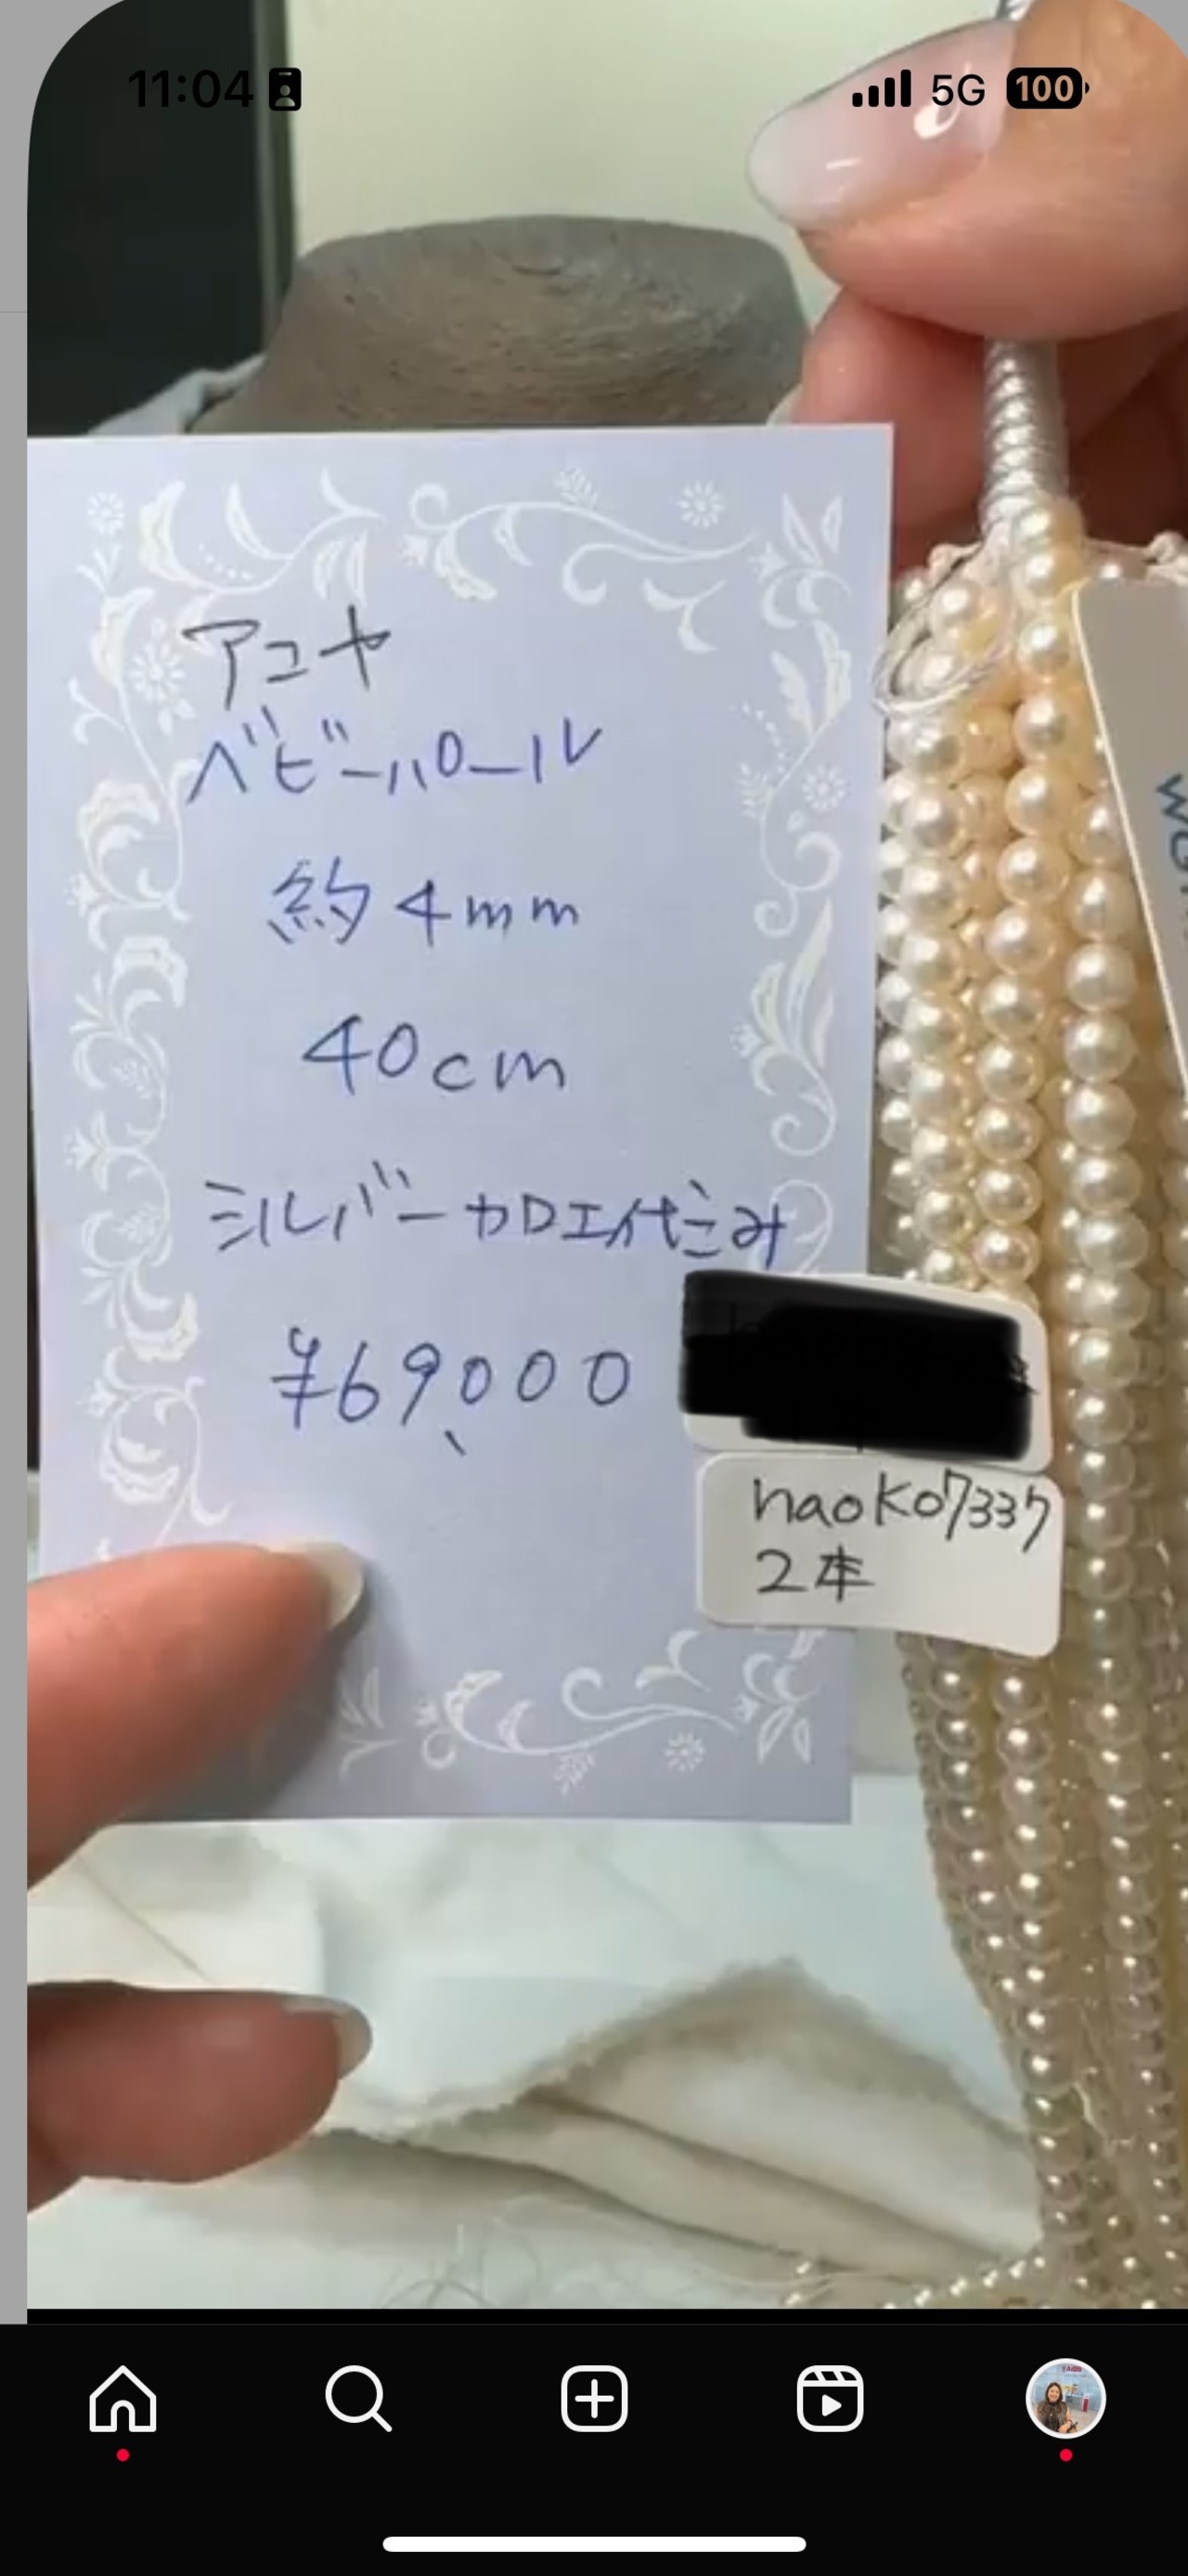 11:04
5G
100
アコヤ
ベビーパール
約4mm
40cm
シルバー加工代込み
¥69,000
naoko7337
2本
WG